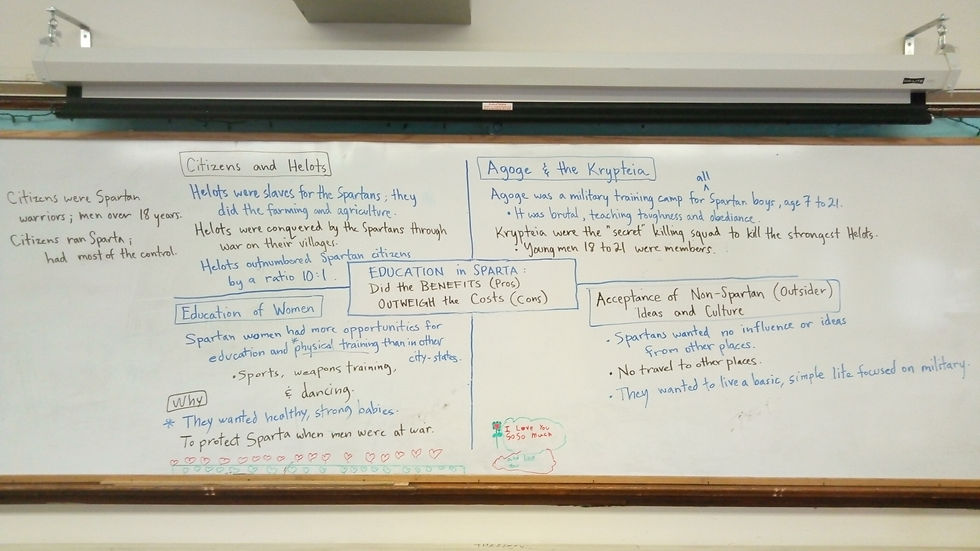 Citizens and Helots
Citizens were Spartan
warriors; men over 18 years.
Citizens ran Sparta;
had most of the control.
Helots were slaves for the Spartans; they
did the farming and agriculture.
Helots were conquered by the Spartans through
war on their villages.
Helots outnumbered Spartan citizens
by a ratio 10:1.
Agoge & the Krypteia
all
Agoge was a military training camp for ^ Spartan boys, age 7 to 21.
• It was brutal, teaching toughness and obediance.
Krypteia were the "secret" killing squad to kill the strongest Helots.
• Young men 18 to 21 were members.
EDUCATION in SPARTA:
Did the BENEFITS (Pros)
OUTWEIGH the Costs (Cons)
Education of Women
Spartan women had more opportunities for
education and *physical training than in other
city-states.
• Sports, weapons training,
& dancing.
Why
* They wanted healthy, strong babies.
To protect Sparta when men were at war.
Acceptance of Non-Spartan (Outsider)
Ideas and Culture
• Spartans wanted no influence or ideas
from other places.
• No travel to other places.
• They wanted to live a basic, simple life focused on military.
I Love You
SoSo Much